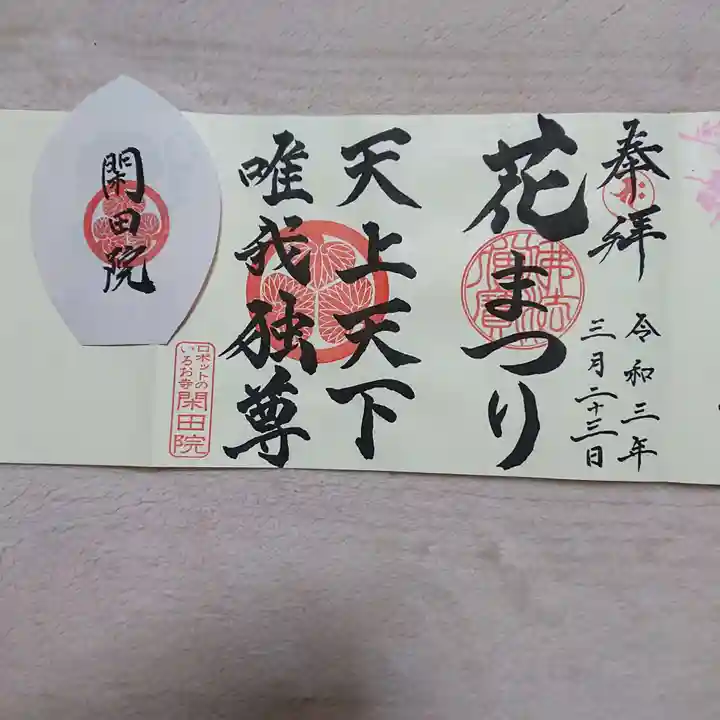 奉拝
令和三年
三月二十三日
花まつり
佛法僧寳
天上天下
唯我独尊
ロボットの
いるお寺
閑田院
閑田院